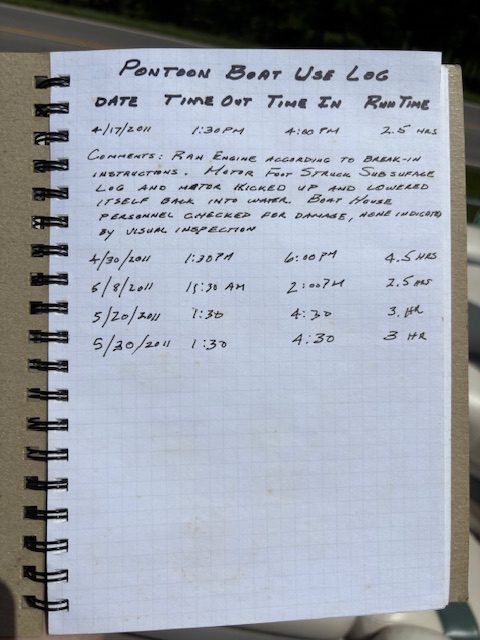 PONTOON BOAT USE LOG
DATE TIME OUT TIME IN RUN TIME
4/17/2011 1:30 PM 4:00 PM 2.5 HRS
COMMENTS: RAN ENGINE ACCORDING TO BREAK-IN
INSTRUCTIONS. MOTOR FOOT STRUCK SUBSURFACE
LOG AND MOTOR KICKED UP AND LOWERED
ITSELF BACK INTO WATER. BOAT HOUSE
PERSONNEL CHECKED FOR DAMAGE, NONE INDICATED
BY VISUAL INSPECTION
4/30/2011 1:30 PM 6:00 PM 4.5 HRS
/8/2011 AM 2:00 PM 2.5 HRS
5/20/2011 1:30 4:30 3. HR
1:30 4:30 3 HR